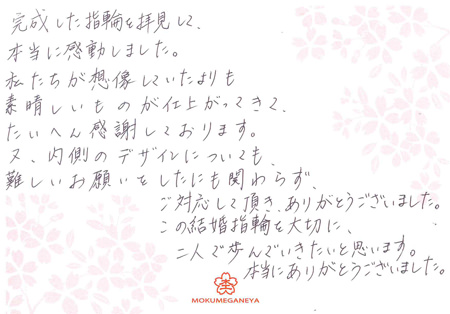 完成した指輪を拝見して、
本当に感動しました。
私たちが想像していたよりも
素晴しいものが仕上がってきて、
たいへん感謝しております。
又、内側のデザインについても、
難しいお願いをしたにも関わらず、
ご対応して頂き、ありがとうございました。
この結婚指輪を大切に、
二人で歩んでいきたいと思います。
本当にありがとうございました。
MOKUMEGANEYA